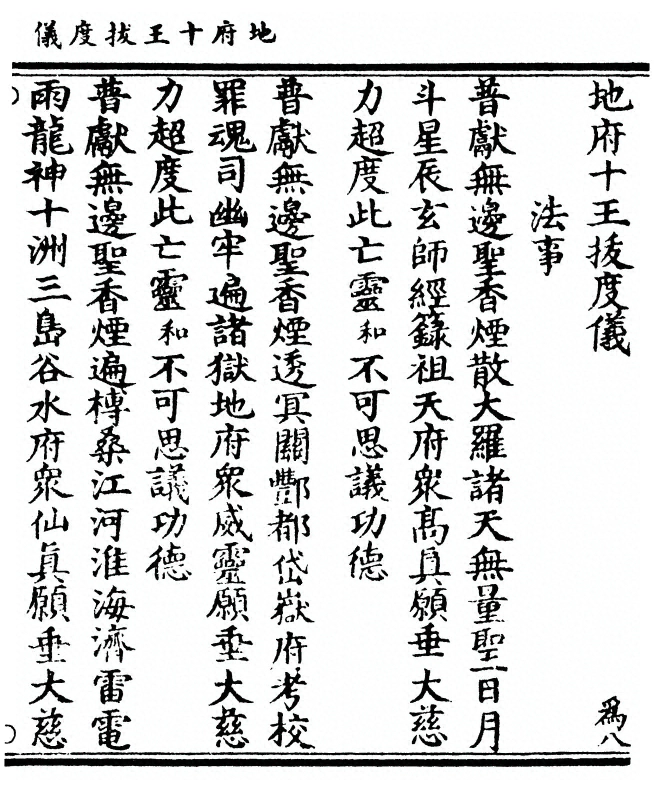 地府十王拔度儀
地府十王拔度儀
為八
法事
普獻無邊聖香煙散大羅諸天無量聖日月
斗星辰玄師經籙祖天府衆高真願垂大慈
力超度此亡靈和不可思議功德
普獻無邊聖香煙透冥關酆都岱嶽府考校
罪魂司幽牢遍諸獄地府衆威靈願垂大慈
力超度此亡靈和不可思議功德
普獻無邊聖香煙遍榑桑江河淮海濟雷電
雨龍神十洲三島谷水府衆仙真願垂大慈